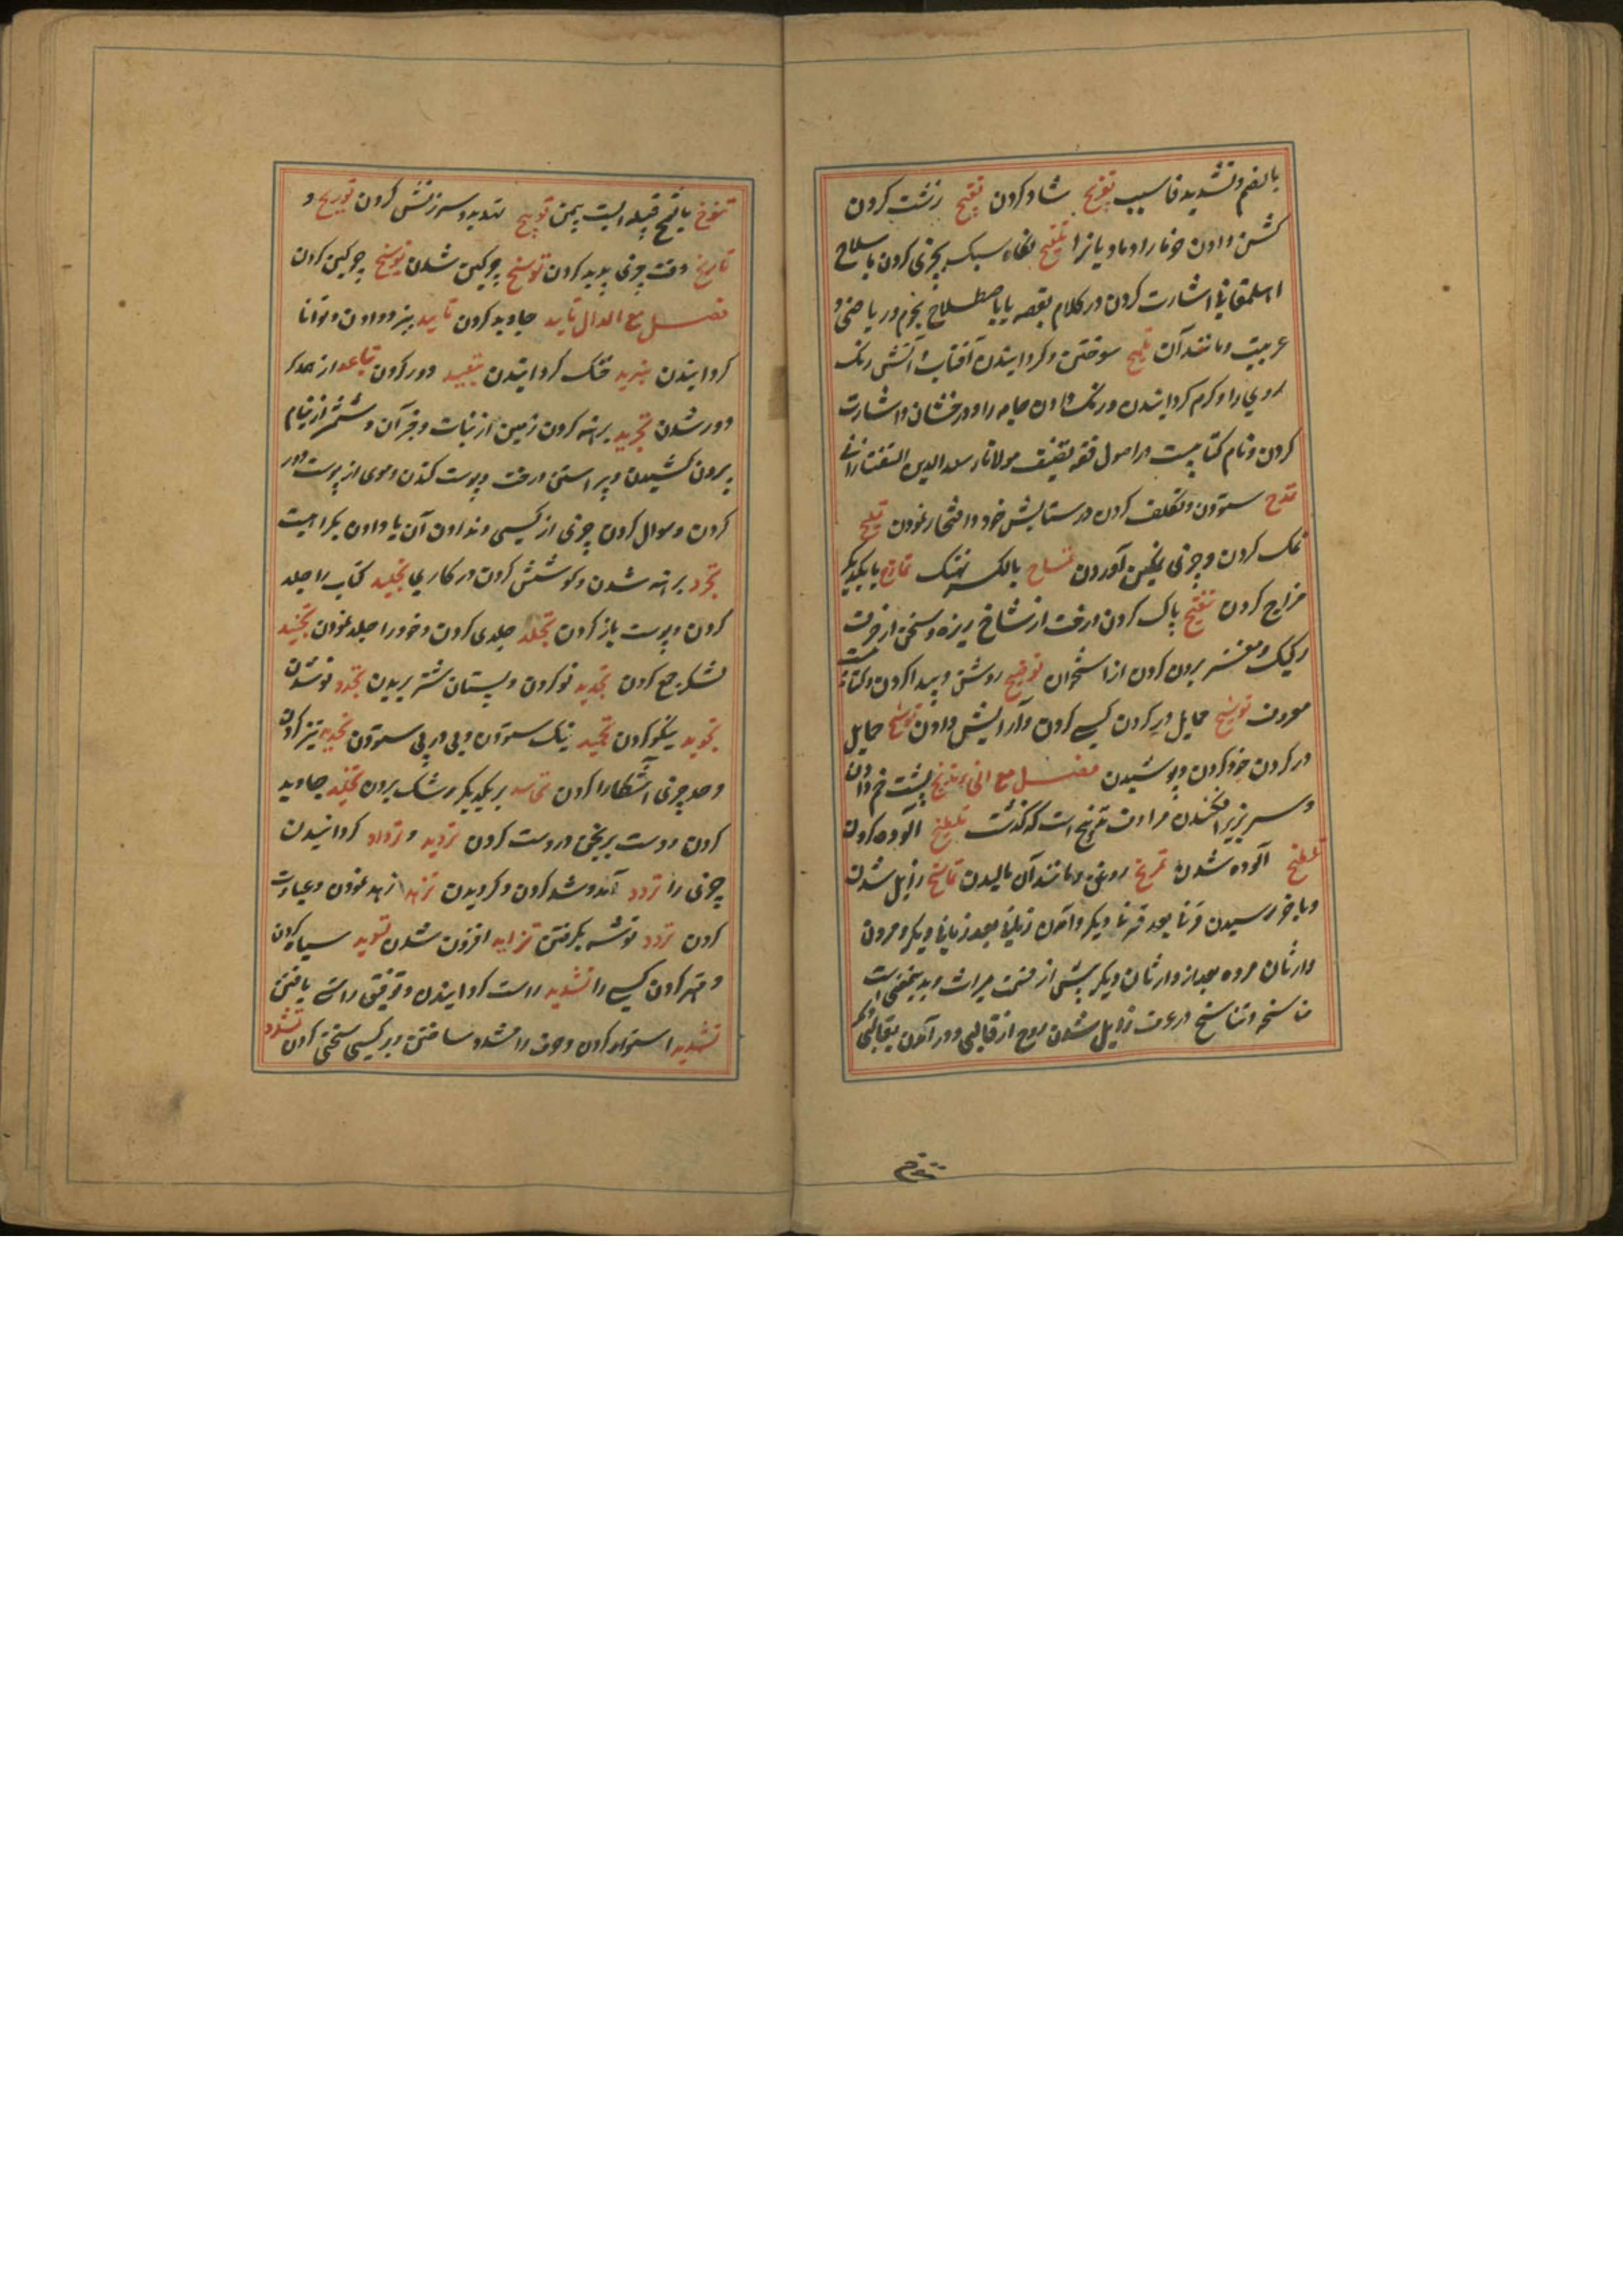 بالضم و تشدید فا سیب تفریح شاد کردن تقبیح زشت کردن
کشن دادن خرما را و مادیانرا تلمیح نگاه سبک بچیزی کردن باصطلاح
اشارت کردن در کلام بقصه یا باصطلاح نجوم و ریاضی و
عربیت و مانند آن تلویح سوختن و گردانیدن آفتاب و آتش رنگ
روی را و گرم گردانیدن و رنگ دادن جامه را و درخشان و اشارت
کردن و نام کتابیست در اصول فقه تصنیف مولانا سعد الدین التفتازانی
تمدح ستودن و تکلف کردن در ستایش خود و افتخار نمودن تملیح
نمک کردن و چیزی نمکین آوردن تمساح بالکسر نهنک تمازح با یکدیگر
مزاح کردن تنقیح پاک کردن درخت از شاخ ریزه و سخن از حرف
رکیک و مغز برون کردن از استخوان توضیح روشن و پیدا کردن و کتابیست
معروف توشیح حمایل در بر کردن کسی کردن و آرایش دادن توشح حمایل
در بر کردن خود کردن و پوشیدن فصل مع الخاء تدبیخ پشت خم دادن
و سر بزیر افکندن مرادف تدبیح است که گذشت تلطیخ آلوده کردن
تلطخ آلوده شدن تمریخ روغن و مانند آن مالیدن تناسخ زایل شدن
و باخر رسیدن قرنا بعد قرنا دیگر و آمدن زمانی بعد زمانی دیگر و مردن
وارثان مرده بعد از وارثان دیگر پیش از قسمت میراث و بدین معنی است
مناسخه و تناسخ در عرف زایل شدن روح از قالبی و در آمدن بقالبی دیگر
تنوخ بالفتح قبیله ایست بیمن توبیخ تهدید و سرزنش کردن توریخ و
تاریخ وقت چیزی پدید کردن توسخ چرکین شدن توسیخ چرکین کردن
فصل مع الدال تابید جاوید کردن تایید نیرو دادن و توانا
گردانیدن تبرید خنک گردانیدن تبعید دور کردن تباعد از همدیگر
دور شدن تجرید برهنه کردن زمین از نبات و قرآن و شمشیر از نیام
برون کشیدن و پیراستن درخت و پوست کندن و موی از پوست دور
کردن و سوال کردن چیزی از کسی و ندادن آن یا دادن بکراهیت
تجرد برهنه شدن و کوشش کردن در کاری تجلید کتاب را جلد
کردن و پوست باز کردن تجلد جلدی کردن و خود را جلد نمودن تجنید
لشکر جمع کردن تجدید نو کردن و پستان شتر بریدن تجدد نو شدن
تجوید نیکو کردن تحمید نیک ستودن و پی در پی ستودن تحدید تیز کردن
و حد چیزی آشکارا کردن تحاسد بر یکدیگر رشک بردن تخلید جاوید
کردن و دست برنجن در دست کردن تردید و ترداد گردانیدن
چیزی را تردد آمد و شد کردن و گردیدن تزهد زهد نمودن و عبادت
کردن تزود توشه برگرفتن تزاید افزون شدن تسوید سیاه کردن
و مهتر کردن کسی را تسدید راست گردانیدن و توفیق راستی یافتن
تشدید استوار کردن و حرف را مشدد ساختن و بر کسی سختی کردن تشدد